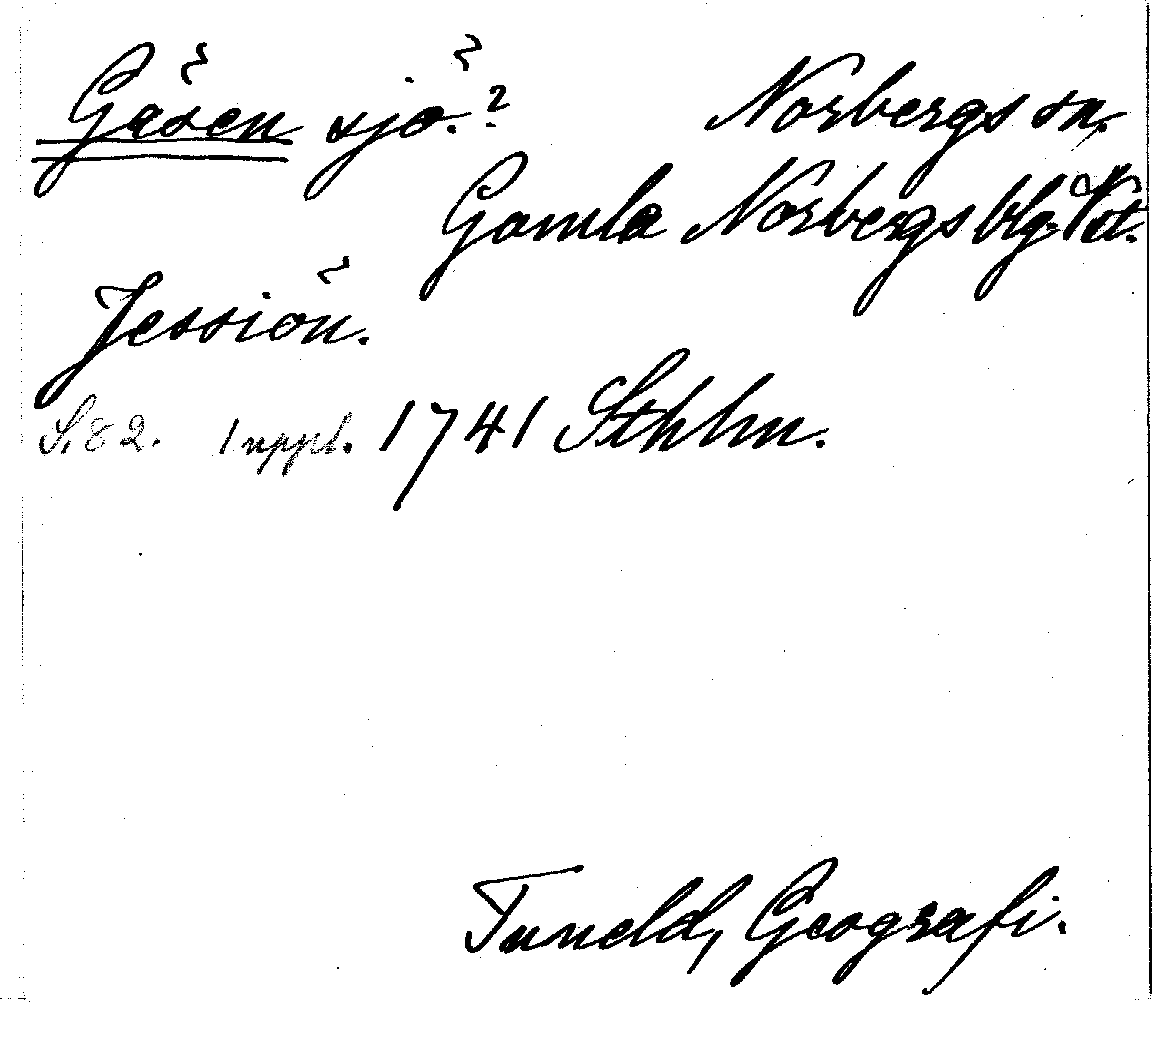 Gåsen sjö.? Norbergs sn.
Gamla Norbergs blg. Vst.
Jessiön.
S. 82. 1 uppl. 1741 Sthlm.
Tuneld, Geografi.